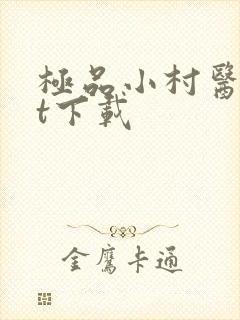 極品小村醫
t下載
金鷹卡通